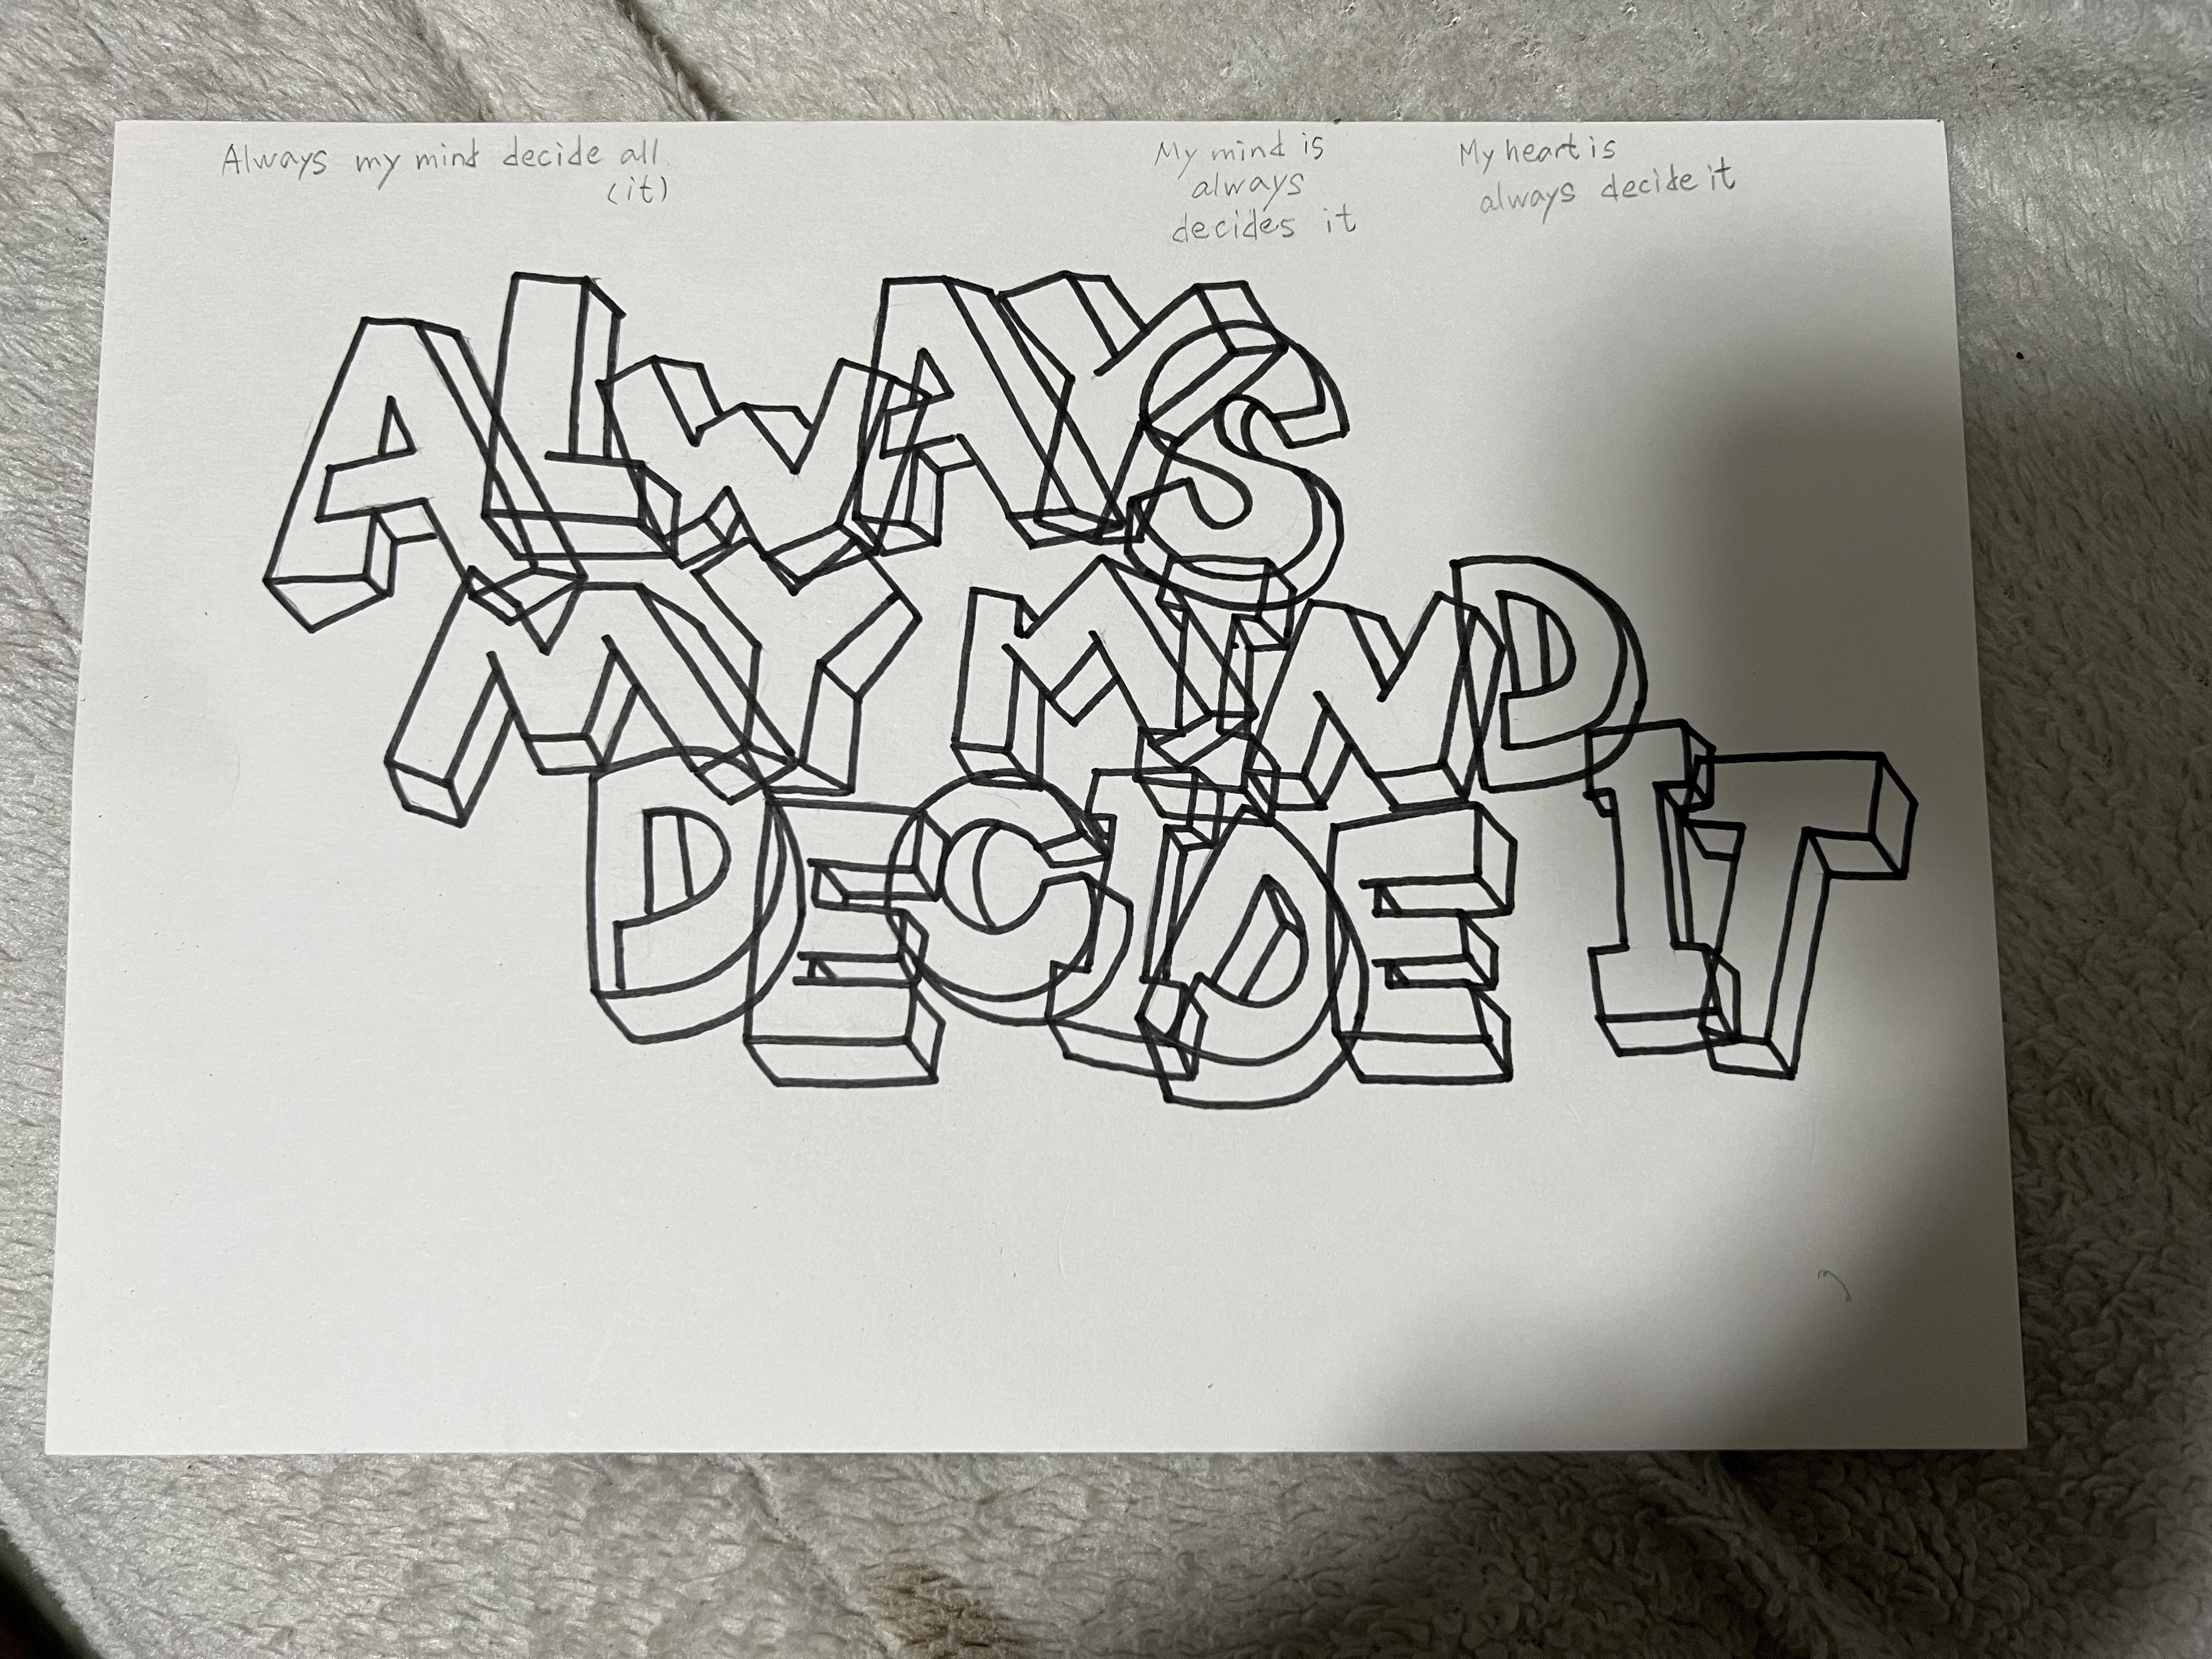 Always my mind decide all
(it)
My mind is
always
decides it
My heart is
always decide it
ALWAYS
MY MIND
DECIDE IT